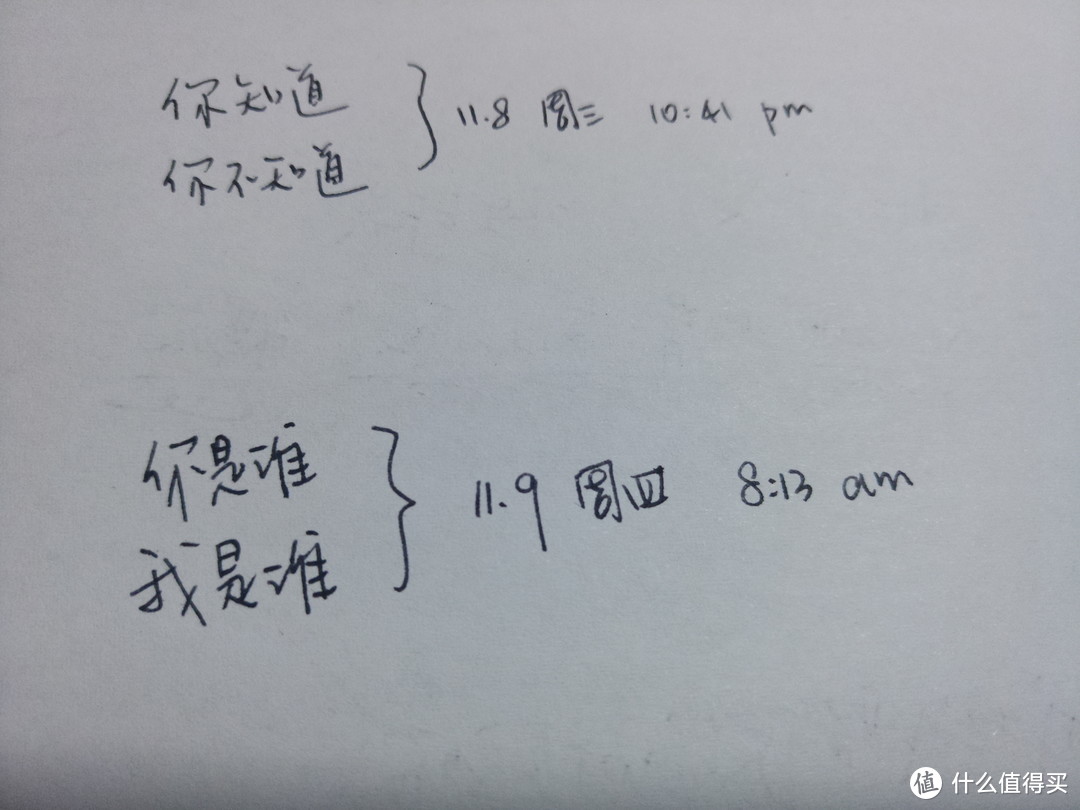 你知道 } 11.8 周三 10:41 pm
你不知道
你是谁 } 11.9 周四 8:13 am
我是谁
值 什么值得买